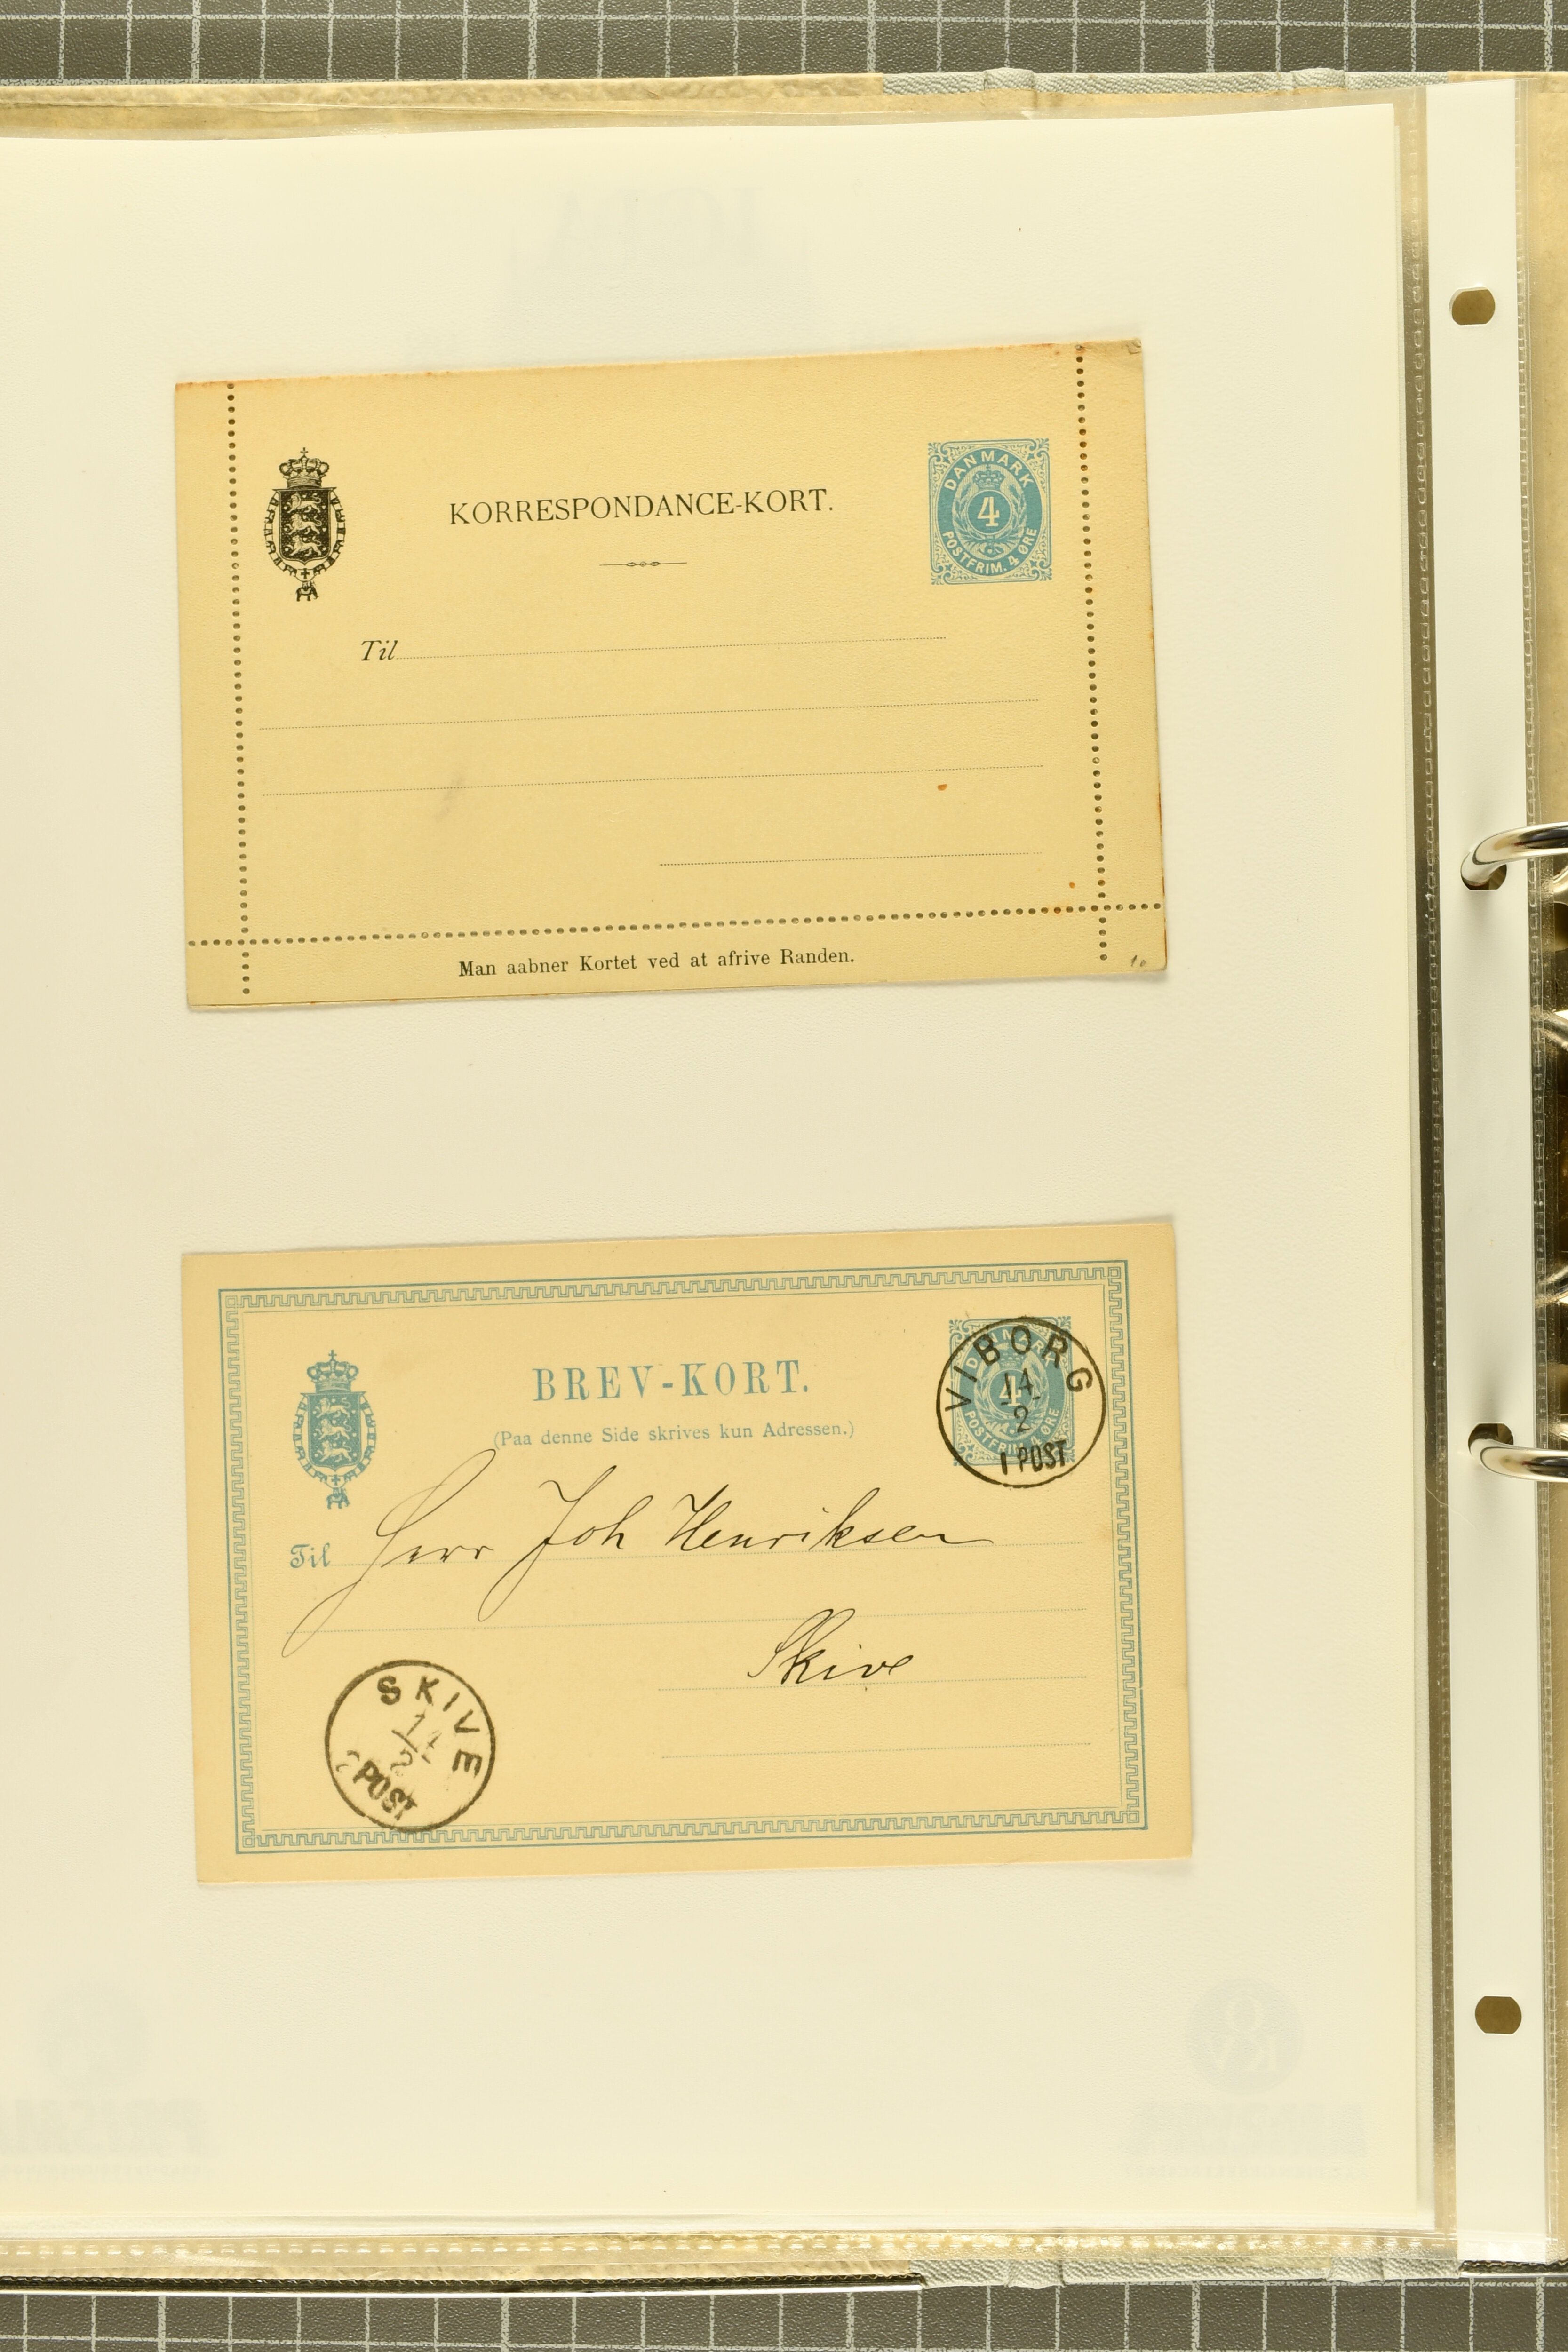 KORRESPONDANCE-KORT.
DANMARK
4
POSTFRIM. 4 ØRE
Til
Man aabner Kortet ved at afrive Randen.
10
BREV-KORT.
(Paa denne Side skrives kun Adressen.)
DANMARK
4
POSTFRIM. 4 ØRE
VIBORG
14
2
1 POST
Til Herr Joh Henriksen
Skive
SKIVE
14
2
2 POST